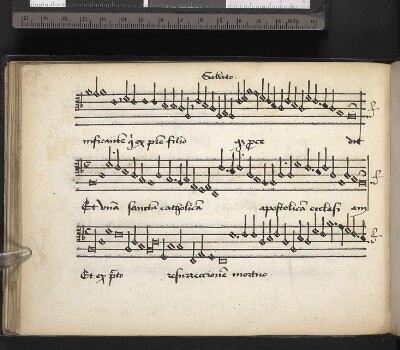 Sabato.
nificantē q̄ ex pr̄e filio q̄ proce dit
Et unā sanctā catholicā apostolicā ecclesi am
Et exp̄cto resurreccionē mortuo